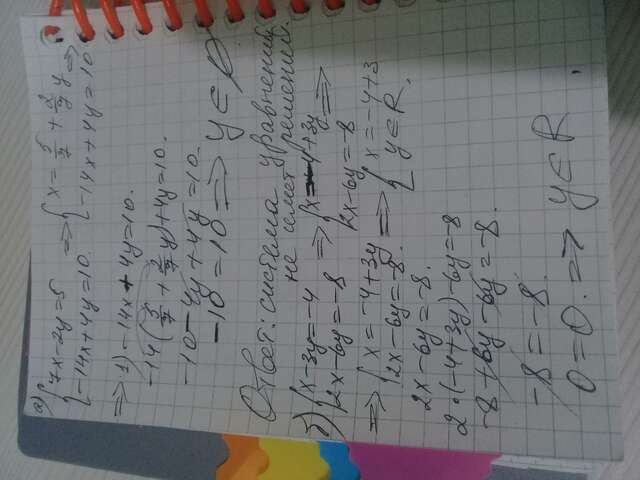 а) {7x-2y=5 ⇒ {x = 5/7 + 2/7 y ⇔
{-14x+4y=10 {-14x+4y=10
⇒ 1) -14x+4y=10.
-14(5/7 + 2/7 y)+4y=10.
-10-4y+4y=10.
-10=10 ⇒ y∈∅
Ответ: система уравнений
не имеет решений.
б) {x-3y=-4 ⇒ {x=-4+3y ⇒
{2x-6y=-8 {2x-6y=-8
⇒ {x=-4+3y ⇒ {x=-4+3
{2x-6y=-8. {y∈R.
2x-6y=-8.
2·(-4+3y)-6y=-8
-8+6y-6y=-8.
-8=-8.
0=0. ⇒ y∈R